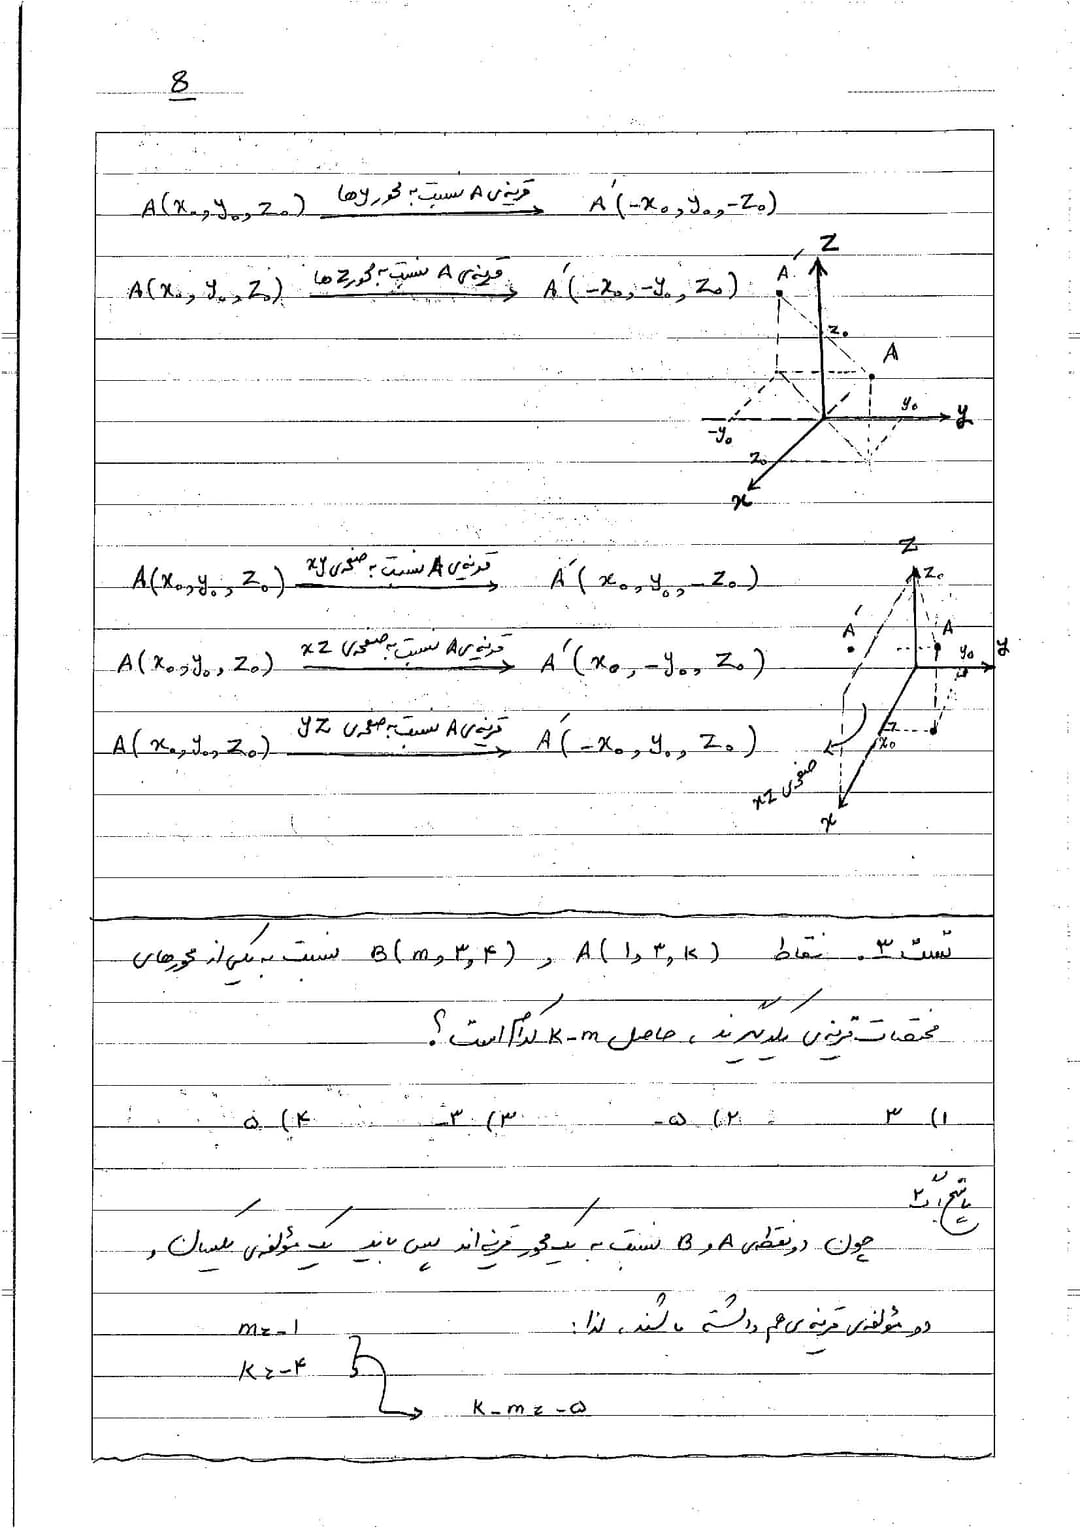 8
A(x₀, y₀, z₀) قرینه‌ی A نسبت به محور yها A′(-x₀, y₀, -z₀)
A(x₀, y₀, z₀) قرینه‌ی A نسبت به محور zها A′(-x₀, -y₀, z₀)
z
A′
z₀
A
y₀
y
-y₀
z₀
x
A(x₀, y₀, z₀) قرینه‌ی A نسبت به صفحه‌ی xy A′(x₀, y₀, -z₀)
A(x₀, y₀, z₀) قرینه‌ی A نسبت به صفحه‌ی xz A′(x₀, -y₀, z₀)
A(x₀, y₀, z₀) قرینه‌ی A نسبت به صفحه‌ی yz A′(-x₀, y₀, z₀)
z
z₀
A′
A
y₀
y
x₀
صفحه‌ی xz
x
تست ۳. نقاط A(۱, ۳, k) و B(m, ۳, ۴) نسبت به یکی از محورهای
مختصات قرینه‌ی یکدیگرند، حاصل k-m کدام است؟
۱) ۳ ۲) -۵ ۳) -۳ ۴) ۵
پاسخ: ۲
چون دو نقطه‌ی A و B نسبت به یک محور قرینه‌اند پس باید یک مؤلفه‌ی یکسان و
دو مؤلفه‌ی قرینه‌ی هم داشته باشند، لذا:
m=-۱
k=-۴
k-m=-۵